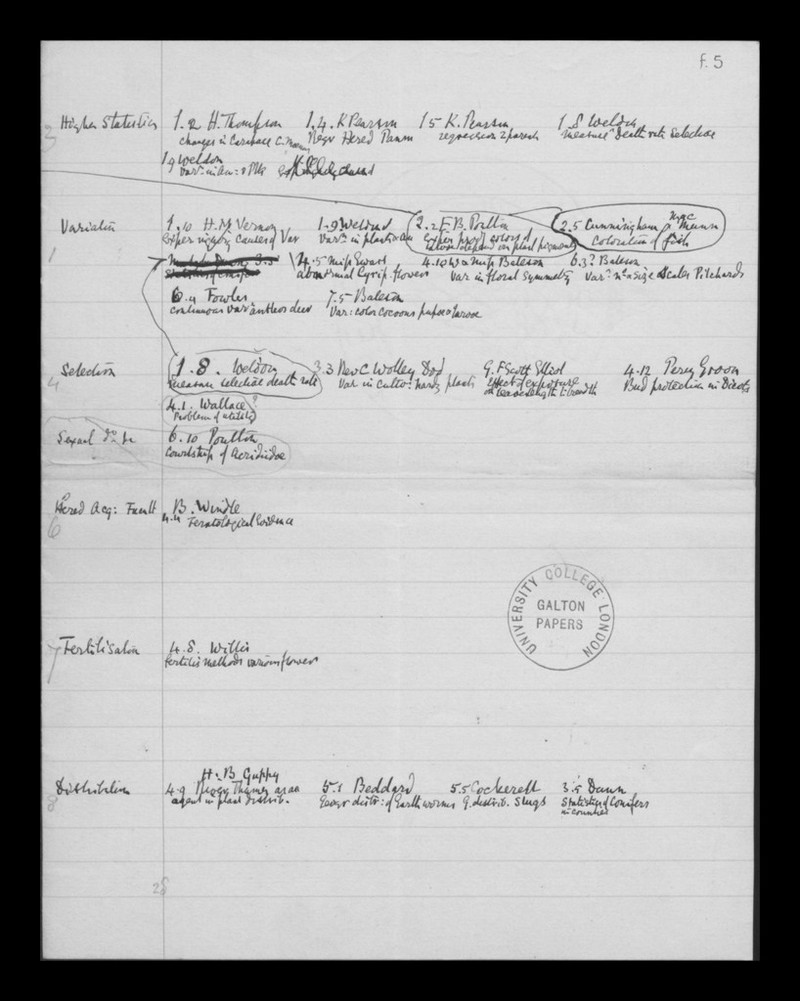 f. 5
3 Higher Statistics 1.2 H. Thompson 1.4. K Pearson 1 5 K. Pearson 1.8 Weldon
changes in Carapace C. Regr Hered Panm regression 2 parents measure death rate selective
1 9 Weldon
Var in 
Variation 1.10 H.M Vernon 1.9 Weldon 2.2 E. B. Poulton 2.5 Cunningham & MacMunn
1 Exper causes of Var Var in Exper proof colors of Coloration of fish
larvae depend on plant pigments
4.5 Miss Ewart 4.10 W & Miss Bateson 6.3? Bateson
abnormal Cyprip. flowers Var in floral symmetry Var in size Scales Pilchards
6.4 Fowler 7.5 Bateson
continuous Var antlers deer Var: color cocoons pupae & larvae
Selection 1.8. Weldon 3.3 Rev C Wolley Dod G. F Scott Elliot 4.12 Percy Groom
4 measure selective death rate Var in Cultiv: hardy plants effect of exposure Bud protection in Dicots
on leaves length & breadth
4.1. Wallace?
Problem of utility
Sexual do 6.10 Poulton
Courtship of Acridiidae
Hered Acq: Facult B. Windle
6 4.4 Teratological Evidence
7 Fertilisation 4.8. Willis
fertilis methods various flowers
H. B Guppy
Distribution 4.9 River Thames as an 5.1 Beddard 5.5 Cockerell 3.5 Dunn
8 agent in plant distrib. Geogr distr: of Earth worms G. distrib. Slugs Statistics of Conifers
UNIVERSITY COLLEGE LONDON
GALTON
PAPERS
28